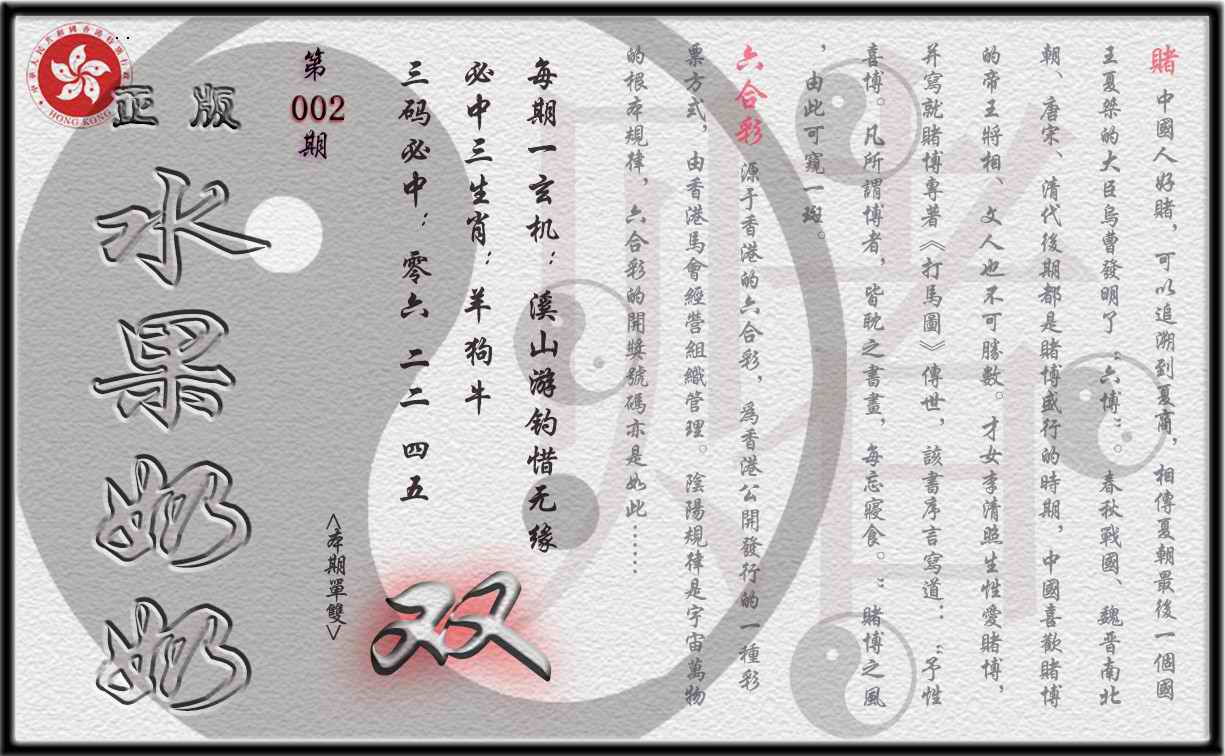 賭 中國人好賭，可以追溯到夏商，相傳夏朝最後一個國
王夏桀的大臣烏曹發明了“六博”。春秋戰國、魏晋南北
朝、唐宋、清代後期都是賭博盛行的時期，中國喜歡賭博
的帝王將相、文人也不可勝數。才女李清照生性愛賭博，
并寫就賭博專著《打馬圖》傳世，該書序言寫道：“予性
喜博。凡所謂博者，皆耽之書晝，每忘寢食。”賭博之風
，由此可窺一斑。
六合彩 源于香港的六合彩，爲香港公開發行的一種彩
票方式，由香港馬會經營組織管理。陰陽規律是宇宙萬物
的根本規律，六合彩的開獎號碼亦是如此……
每期一玄机：溪山游钓惜无缘
必中三生肖：羊狗牛
三码必中：零六 二二 四五
第
002
期
<本期單雙>
双
正版
水果奶奶
中華人民共和國香港特別行政區
HONG KONG